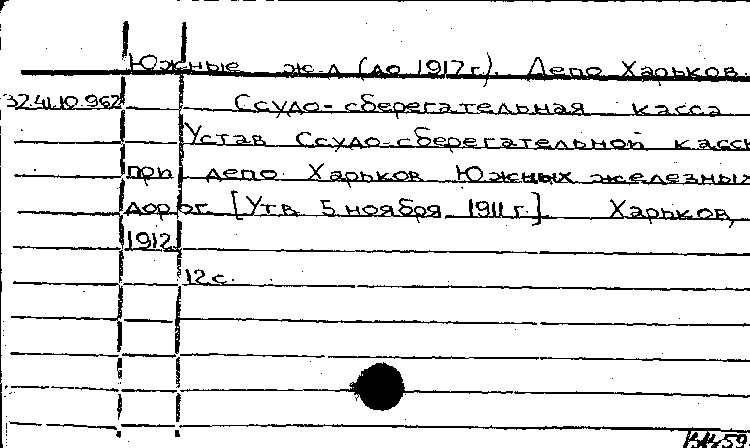 Южные ж.д (до 1917 г.). Депо Харьков.
32.41.10.962 Ссудо-сберегательная касса
Устав Ссудо-сберегательной касс
при депо Харьков Южных железных
дорог. [Утв. 5 ноября 1911 г.]. Харьков,
1912
12 с.